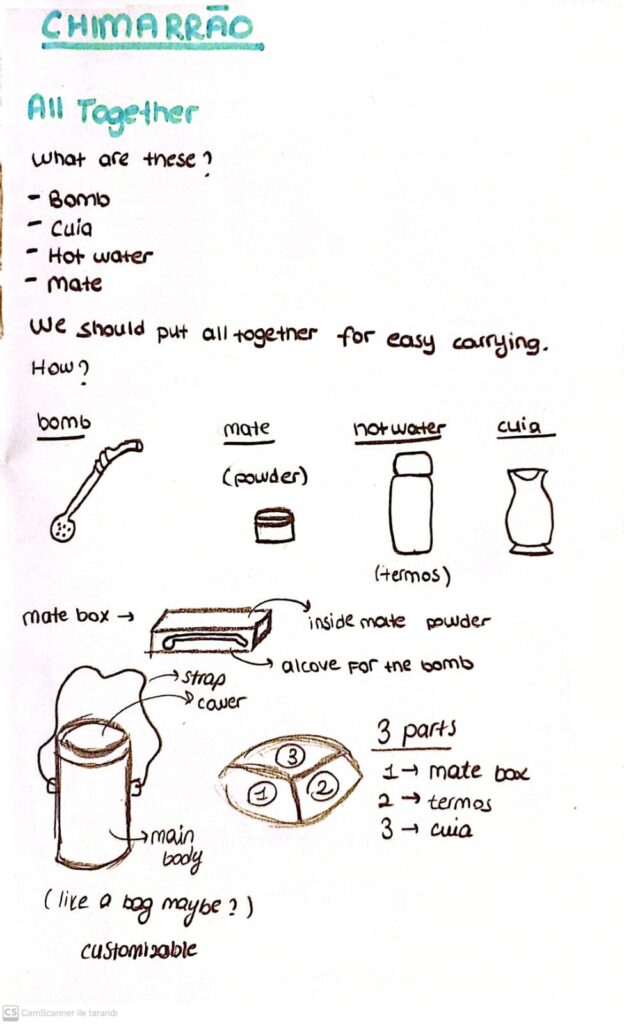 CHIMARRÃO
All Together
What are these?
- Bomb
- Cuia
- Hot water
- Mate
We should put all together for easy carrying.
How?
bomb
mate
hot water
cuia
(powder)
(termos)
mate box →
inside mate powder
alcove for the bomb
strap
cover
main
body
3
1
2
3 parts
1 → mate box
2 → termos
3 → cuia
(like a bag maybe?)
customizable
CS CamScanner ile tarandı